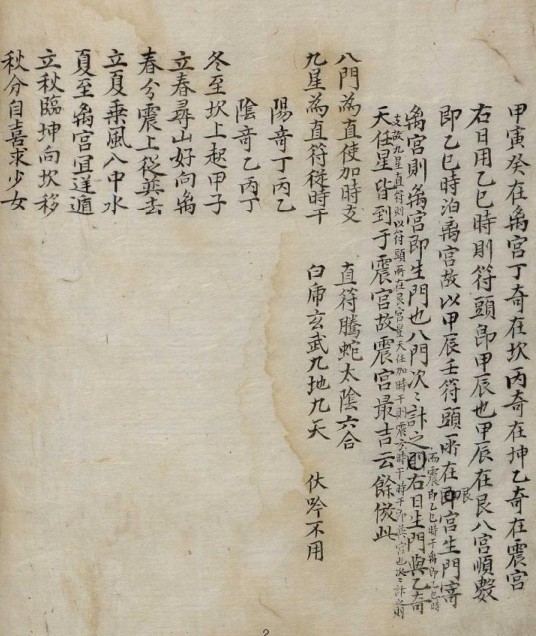 甲寅癸在离宫丁奇在坎丙奇在坤乙奇在震宫
右日用乙巳時則符頭即甲辰也甲辰在艮八宮順數
即乙巳時泊离宫故以甲辰壬符頭所在宮生門寄
离宫則离宫即生門也八門次〻計之則右日生門與乙奇
天任星皆到于震宫故震宫最吉云餘倣此
八門為直使加時支
九星為直符徒時干
直符騰蛇太陰六合
白虎玄武九地九天
伏吟不用
陽奇丁丙乙
陰奇乙丙丁
冬至坎上起甲子
立春尋山好向离
春分震上從巽去
立夏乘風八中水
夏至离宫宜逆遁
立秋臨坤向坎移
秋分自喜求少女